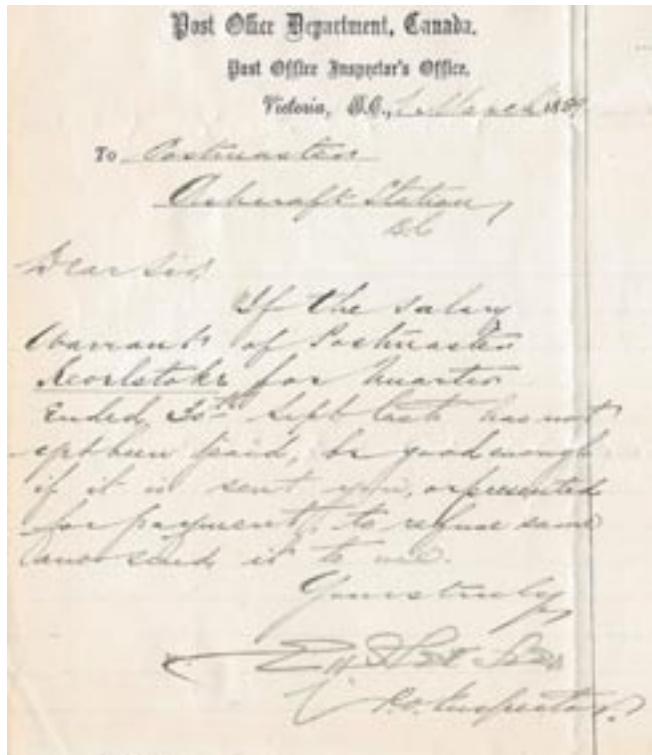 Post Office Department, Canada.
Post Office Inspector's Office.
Victoria, B.C., March 188
To Postmaster
Ashcroft Station,
B.C.
Dear Sir,
If the salary
Warrant of Postmaster
Revelstoke for Quarter
Ended 30th Sept last has not
yet been paid, be good enough
if it is sent you, or presented
for payment, to refuse same
and send it to me.
Yours truly,
P.O. Inspector.